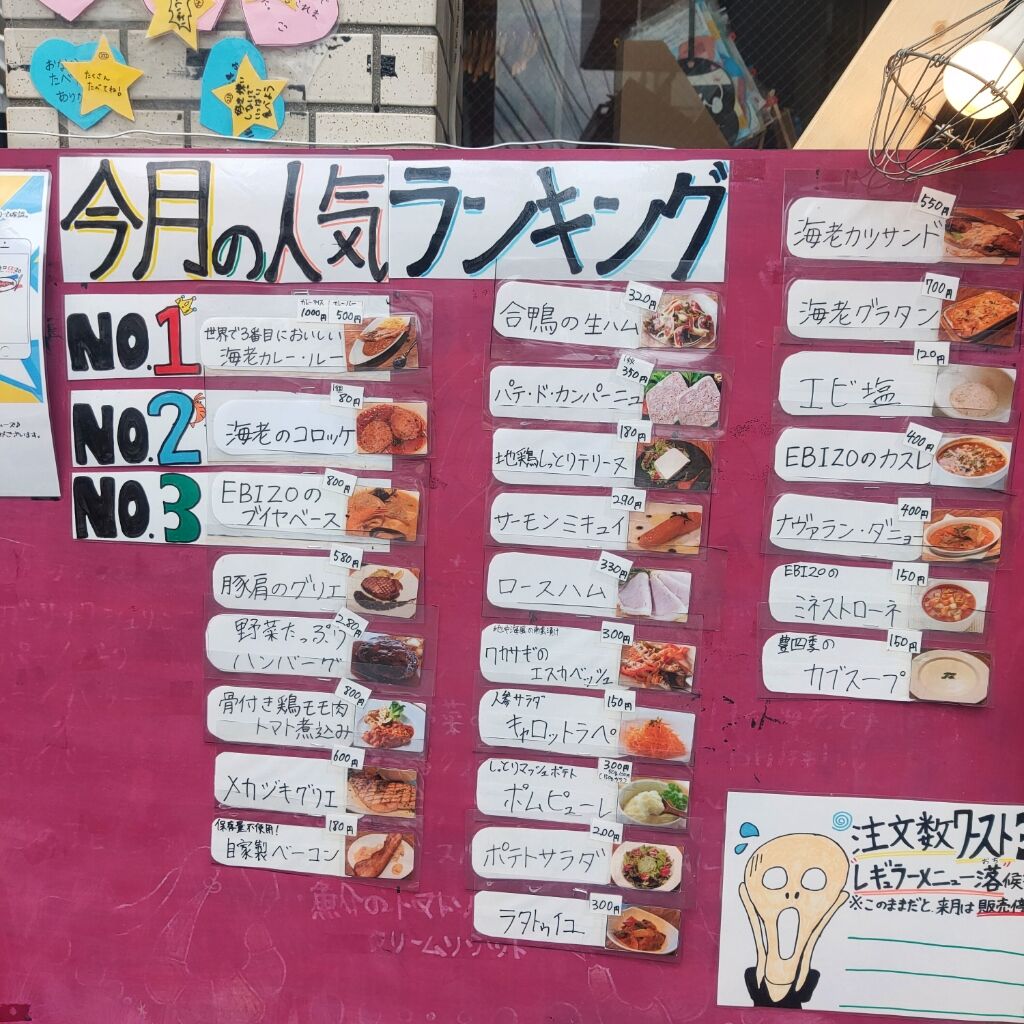 たくさん
たべてね!
今月の人気ランキング
NO.1
カレーライス
1000円
カレールー
500円
世界で3番目においしい
海老カレー・ルー
NO.2
1個
80円
海老のコロッケ
NO.3
800円
EBIZOの
ブイヤベース
580円
豚肩のグリエ
280円
野菜たっぷり
ハンバーグ
800円
骨付き鶏モモ肉
トマト煮込み
600円
メカジキグリエ
180円
保存量不使用!
自家製ベーコン
320円
合鴨の生ハム
1枚
350円
パテ・ド・カンパーニュ
180円
地鶏しっとりテリーヌ
290円
サーモンミキュイ
330円
ロースハム
300円
ワカサギの
エスカベッシュ
150円
人参サラダ
キャロットラペ
300円
しっとりマッシュポテト
ポムピューレ
200円
ポテトサラダ
300円
ラタトゥイユ
550円
海老カツサンド
700円
海老グラタン
120円
エビ塩
400円
EBIZOのカスレ
400円
ナヴァラン・ダニョー
150円
EBIZOの
ミネストローネ
150円
豊四季の
カブスープ
注文数ワースト3
レギュラーメニュー落候
※このままだと、来月は販売停